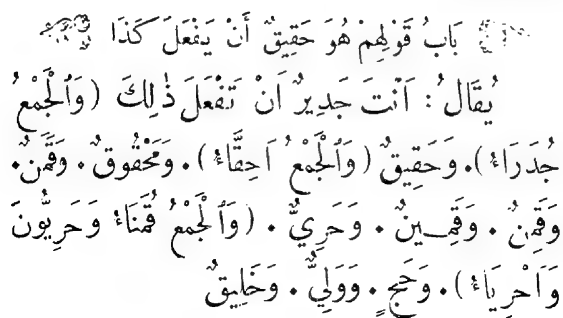 بَابُ قَوْلِهِمْ هُوَ حَقِيقٌ أَنْ يَفْعَلَ كَذَا
يُقَالُ : اَنْتَ جَدِيرٌ اَنْ تَفْعَلَ ذٰلِكَ (وَٱلْجَمْعُ
جُدَرَاءُ). وَحَقِيقٌ (وَٱلْجَمْعُ اَحِقَّاءُ). وَمَحْقُوقٌ. وَقَمَنٌ.
وَقَمِنٌ. وَقَمِينٌ. وَحَرِيٌّ. (وَٱلْجَمْعُ قُمَنَاءُ وَحَرِيُّونَ
وَاَحْرِيَاءُ). وَحَجٍ. وَوَلِيٌّ. وَخَلِيقٌ